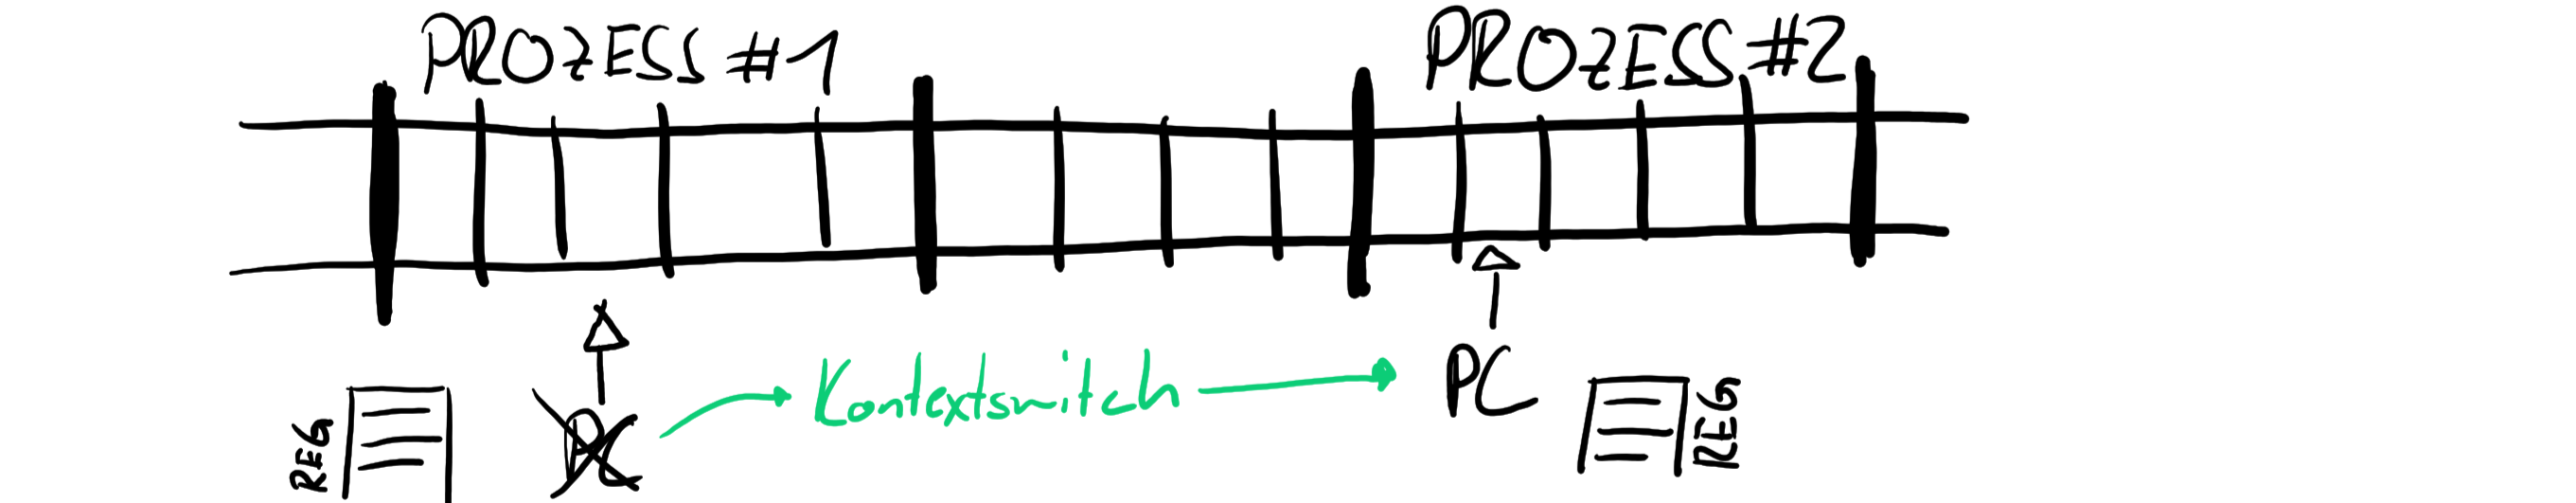 PROZESS #1
PROZESS #2
REG
PC
Kontextswitch
PC
REG